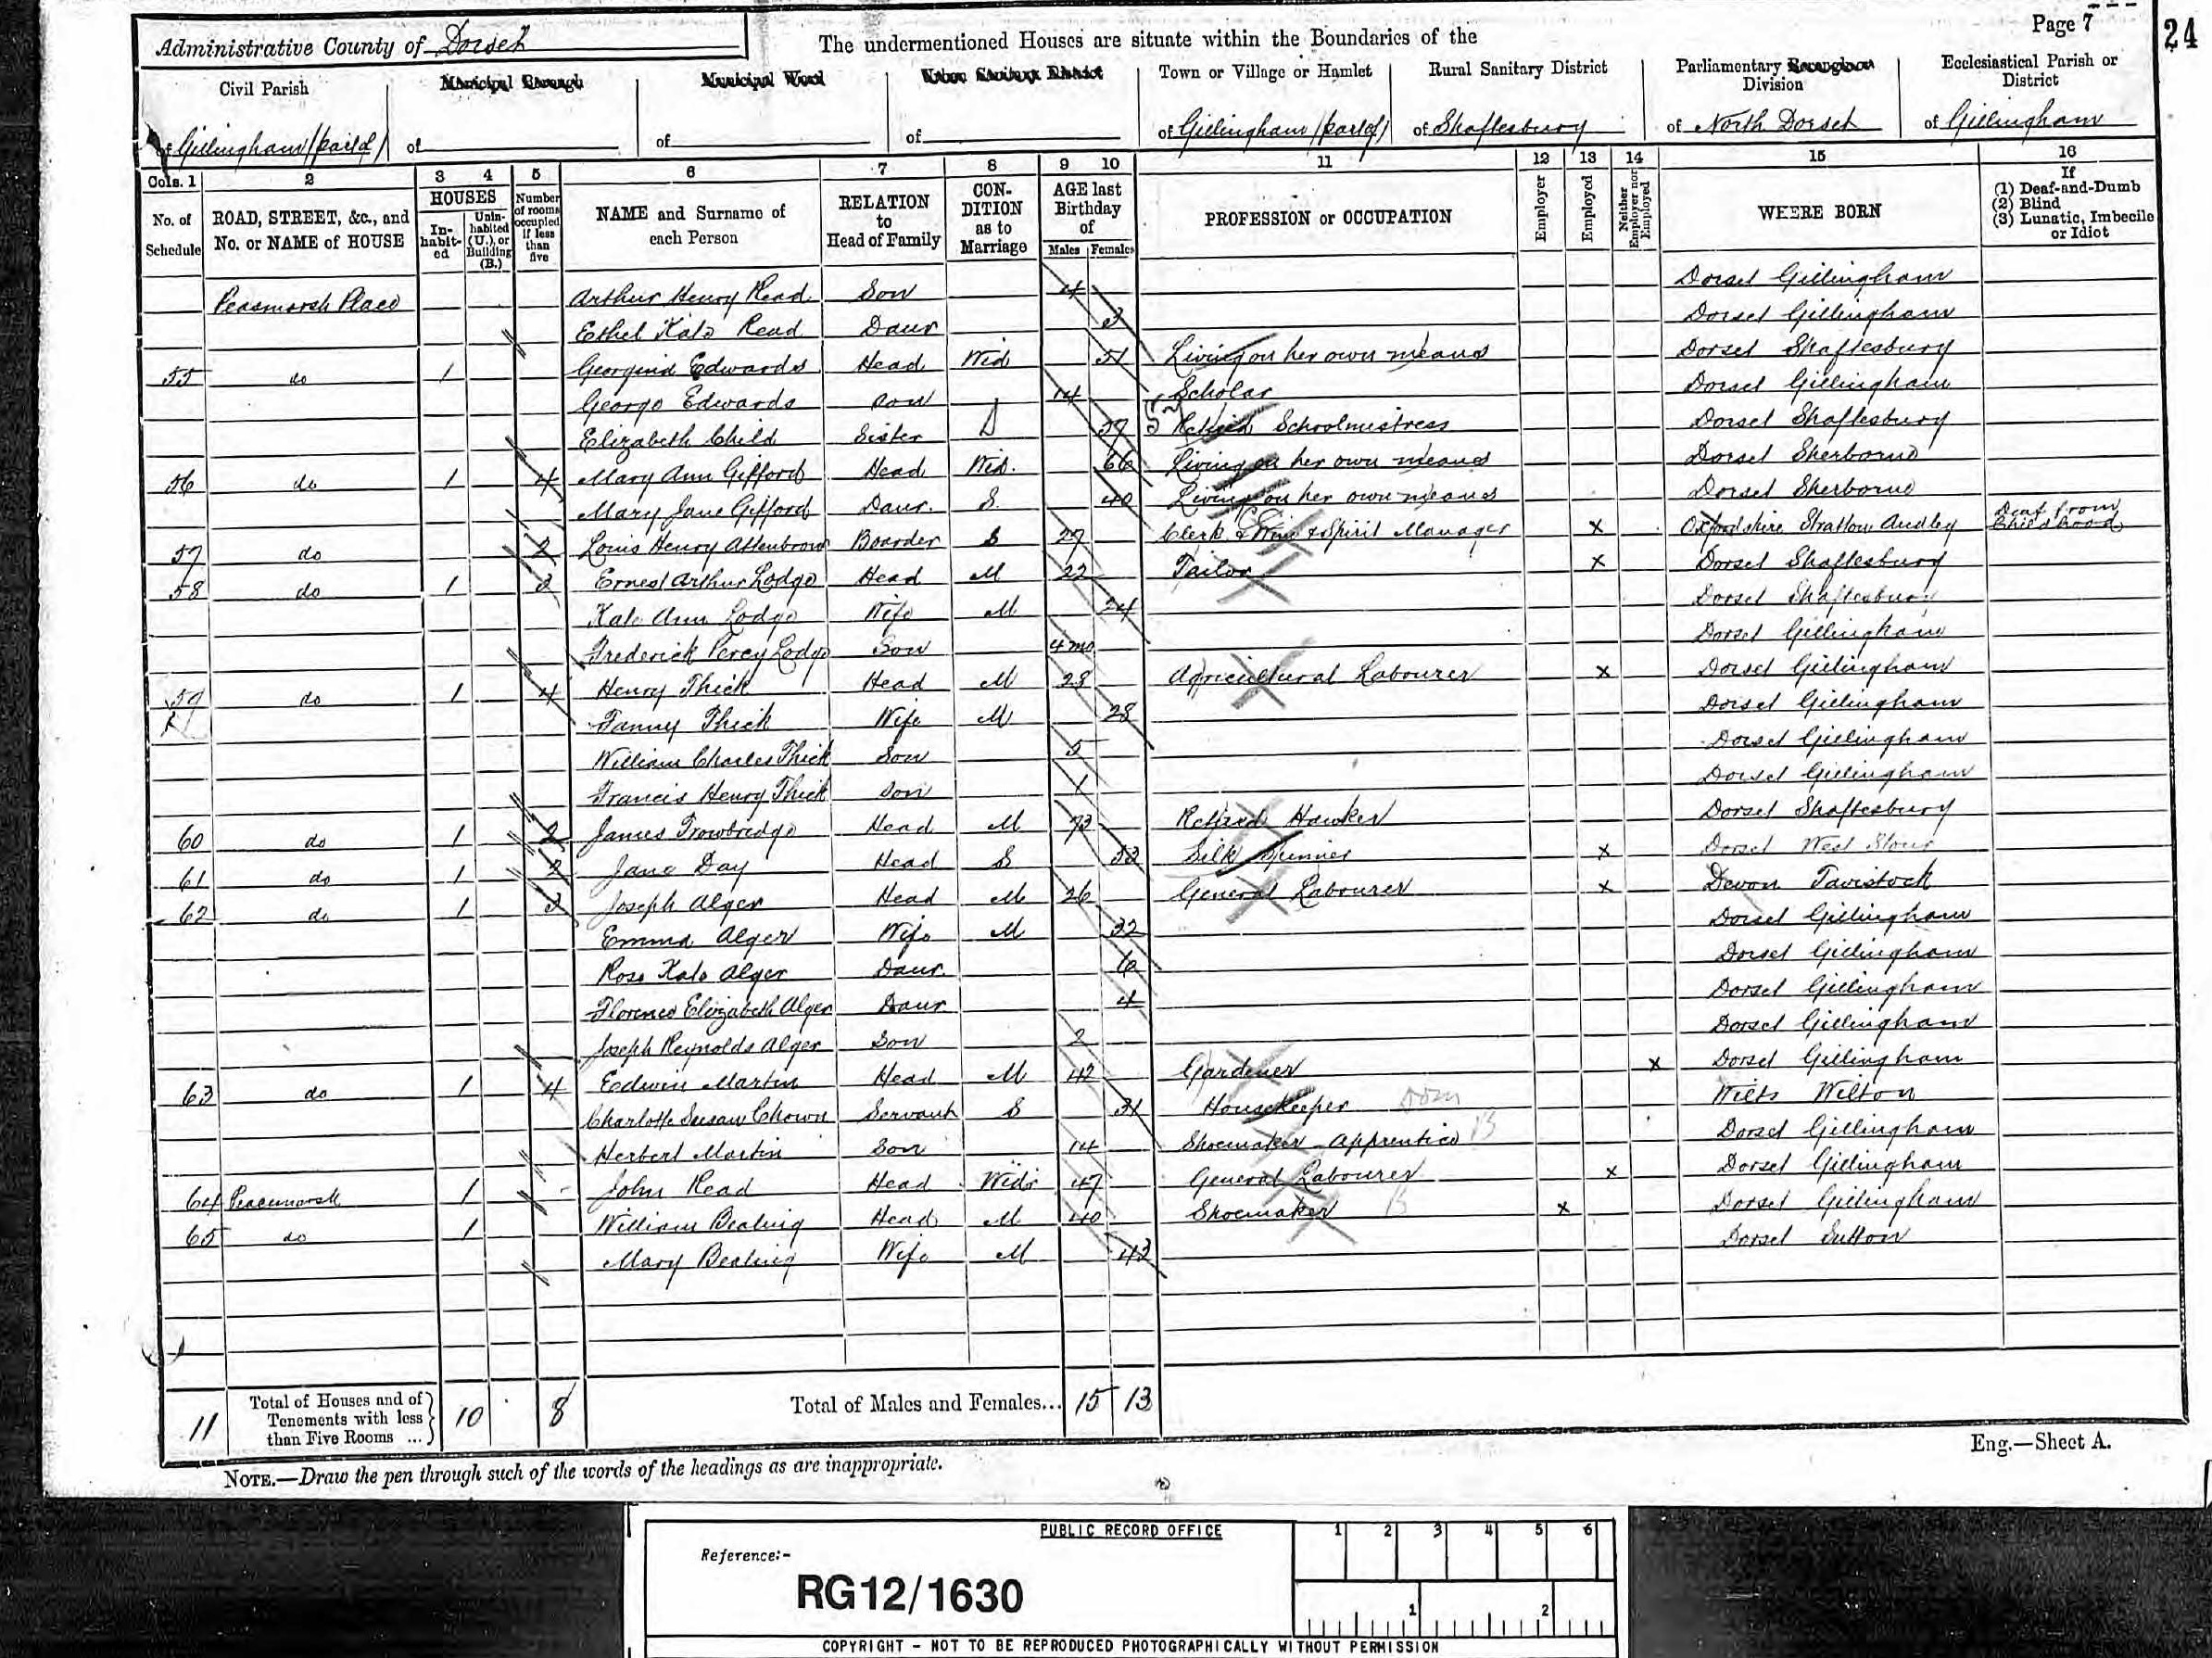 Page 7
24
Administrative County of Dorset
The undermentioned Houses are situate within the Boundaries of the
Civil Parish of Gillingham (part of)
Municipal Borough of
Municipal Ward of
Urban Sanitary District of
Town or Village or Hamlet of Gillingham (part of)
Rural Sanitary District of Shaftesbury
Parliamentary Borough or Division of North Dorset
Ecclesiastical Parish or District of Gillingham
Cols. 1 2 3 4 5 6 7 8 9 10 11 12 13 14 15 16
No. of Schedule
ROAD, STREET, &c., and No. or NAME of HOUSE
HOUSES
In-habit-ed
Unin-habited (U.), or Building (B.)
Number of rooms occupied if less than five
NAME and Surname of each Person
RELATION to Head of Family
CON-DITION as to Marriage
AGE last Birthday of
Males Females
PROFESSION or OCCUPATION
Employer
Employed
Neither Employer nor Employed
WHERE BORN
If
(1) Deaf-and-Dumb
(2) Blind
(3) Lunatic, Imbecile or Idiot
Peasmarsh Place Arthur Henry Read Son 4 Dorset Gillingham
Ethel Kate Read Daur 3 Dorset Gillingham
55 do 1 Georgina Edwards Head Wid 51 Living on her own means Dorset Shaftesbury
George Edwards Son 14 Scholar Dorset Gillingham
Elizabeth Child Sister 57 Retired Schoolmistress Dorset Shaftesbury
56 do 1 4 Mary Ann Gifford Head Wid. 66 Living on her own means Dorset Sherborne
Mary Jane Gifford Daur. S. 40 Living on her own means Dorset Sherborne
57 do 2 Louis Henry Attenbrow Boarder S 27 Clerk & Wine & Spirit Manager x Oxfordshire Stratton Audley Deaf from Childhood
58 do 1 3 Ernest Arthur Lodge Head M 22 Tailor x Dorset Shaftesbury
Kate Ann Lodge Wife M 24 Dorset Shaftesbury
Frederick Percy Lodge Son 4 mo Dorset Gillingham
59 do 1 4 Henry Thick Head M 28 Agricultural Labourer x Dorset Gillingham
Fanny Thick Wife M 28 Dorset Gillingham
William Charles Thick Son 5 Dorset Gillingham
Francis Henry Thick Son 1 Dorset Gillingham
60 do 1 2 James Trowbridge Head M 73 Retired Hawker Dorset Shaftesbury
61 do 1 2 Jane Day Head S 53 Silk Spinner x Dorset West Stour
62 do 1 3 Joseph Alger Head M 26 General Labourer x Devon Tavistock
Emma Alger Wife M 32 Dorset Gillingham
Rose Kate Alger Daur. 6 Dorset Gillingham
Florence Elizabeth Alger Daur 4 Dorset Gillingham
Joseph Reynolds Alger Son 2 Dorset Gillingham
63 do 1 4 Edwin Martin Head M 42 Gardener x Dorset Gillingham
Charlotte Susan Chown Servant S 31 Housekeeper Dom Wilts Wilton
Herbert Martin Son 14 Shoemaker Apprentice Dorset Gillingham
64 Peacemarsh 1 John Read Head Widr 47 General Labourer x Dorset Gillingham
65 do 1 William Bealing Head M 40 Shoemaker x Dorset Gillingham
Mary Bealing Wife M 43 Dorset Sutton
11 Total of Houses and of Tenements with less than Five Rooms ... 10 8 Total of Males and Females... 15 13
Eng.—Sheet A.
NOTE.—Draw the pen through such of the words of the headings as are inappropriate.
PUBLIC RECORD OFFICE
1 2 3 4 5 6
Reference:-
RG12/1630
1 2
COPYRIGHT - NOT TO BE REPRODUCED PHOTOGRAPHICALLY WITHOUT PERMISSION